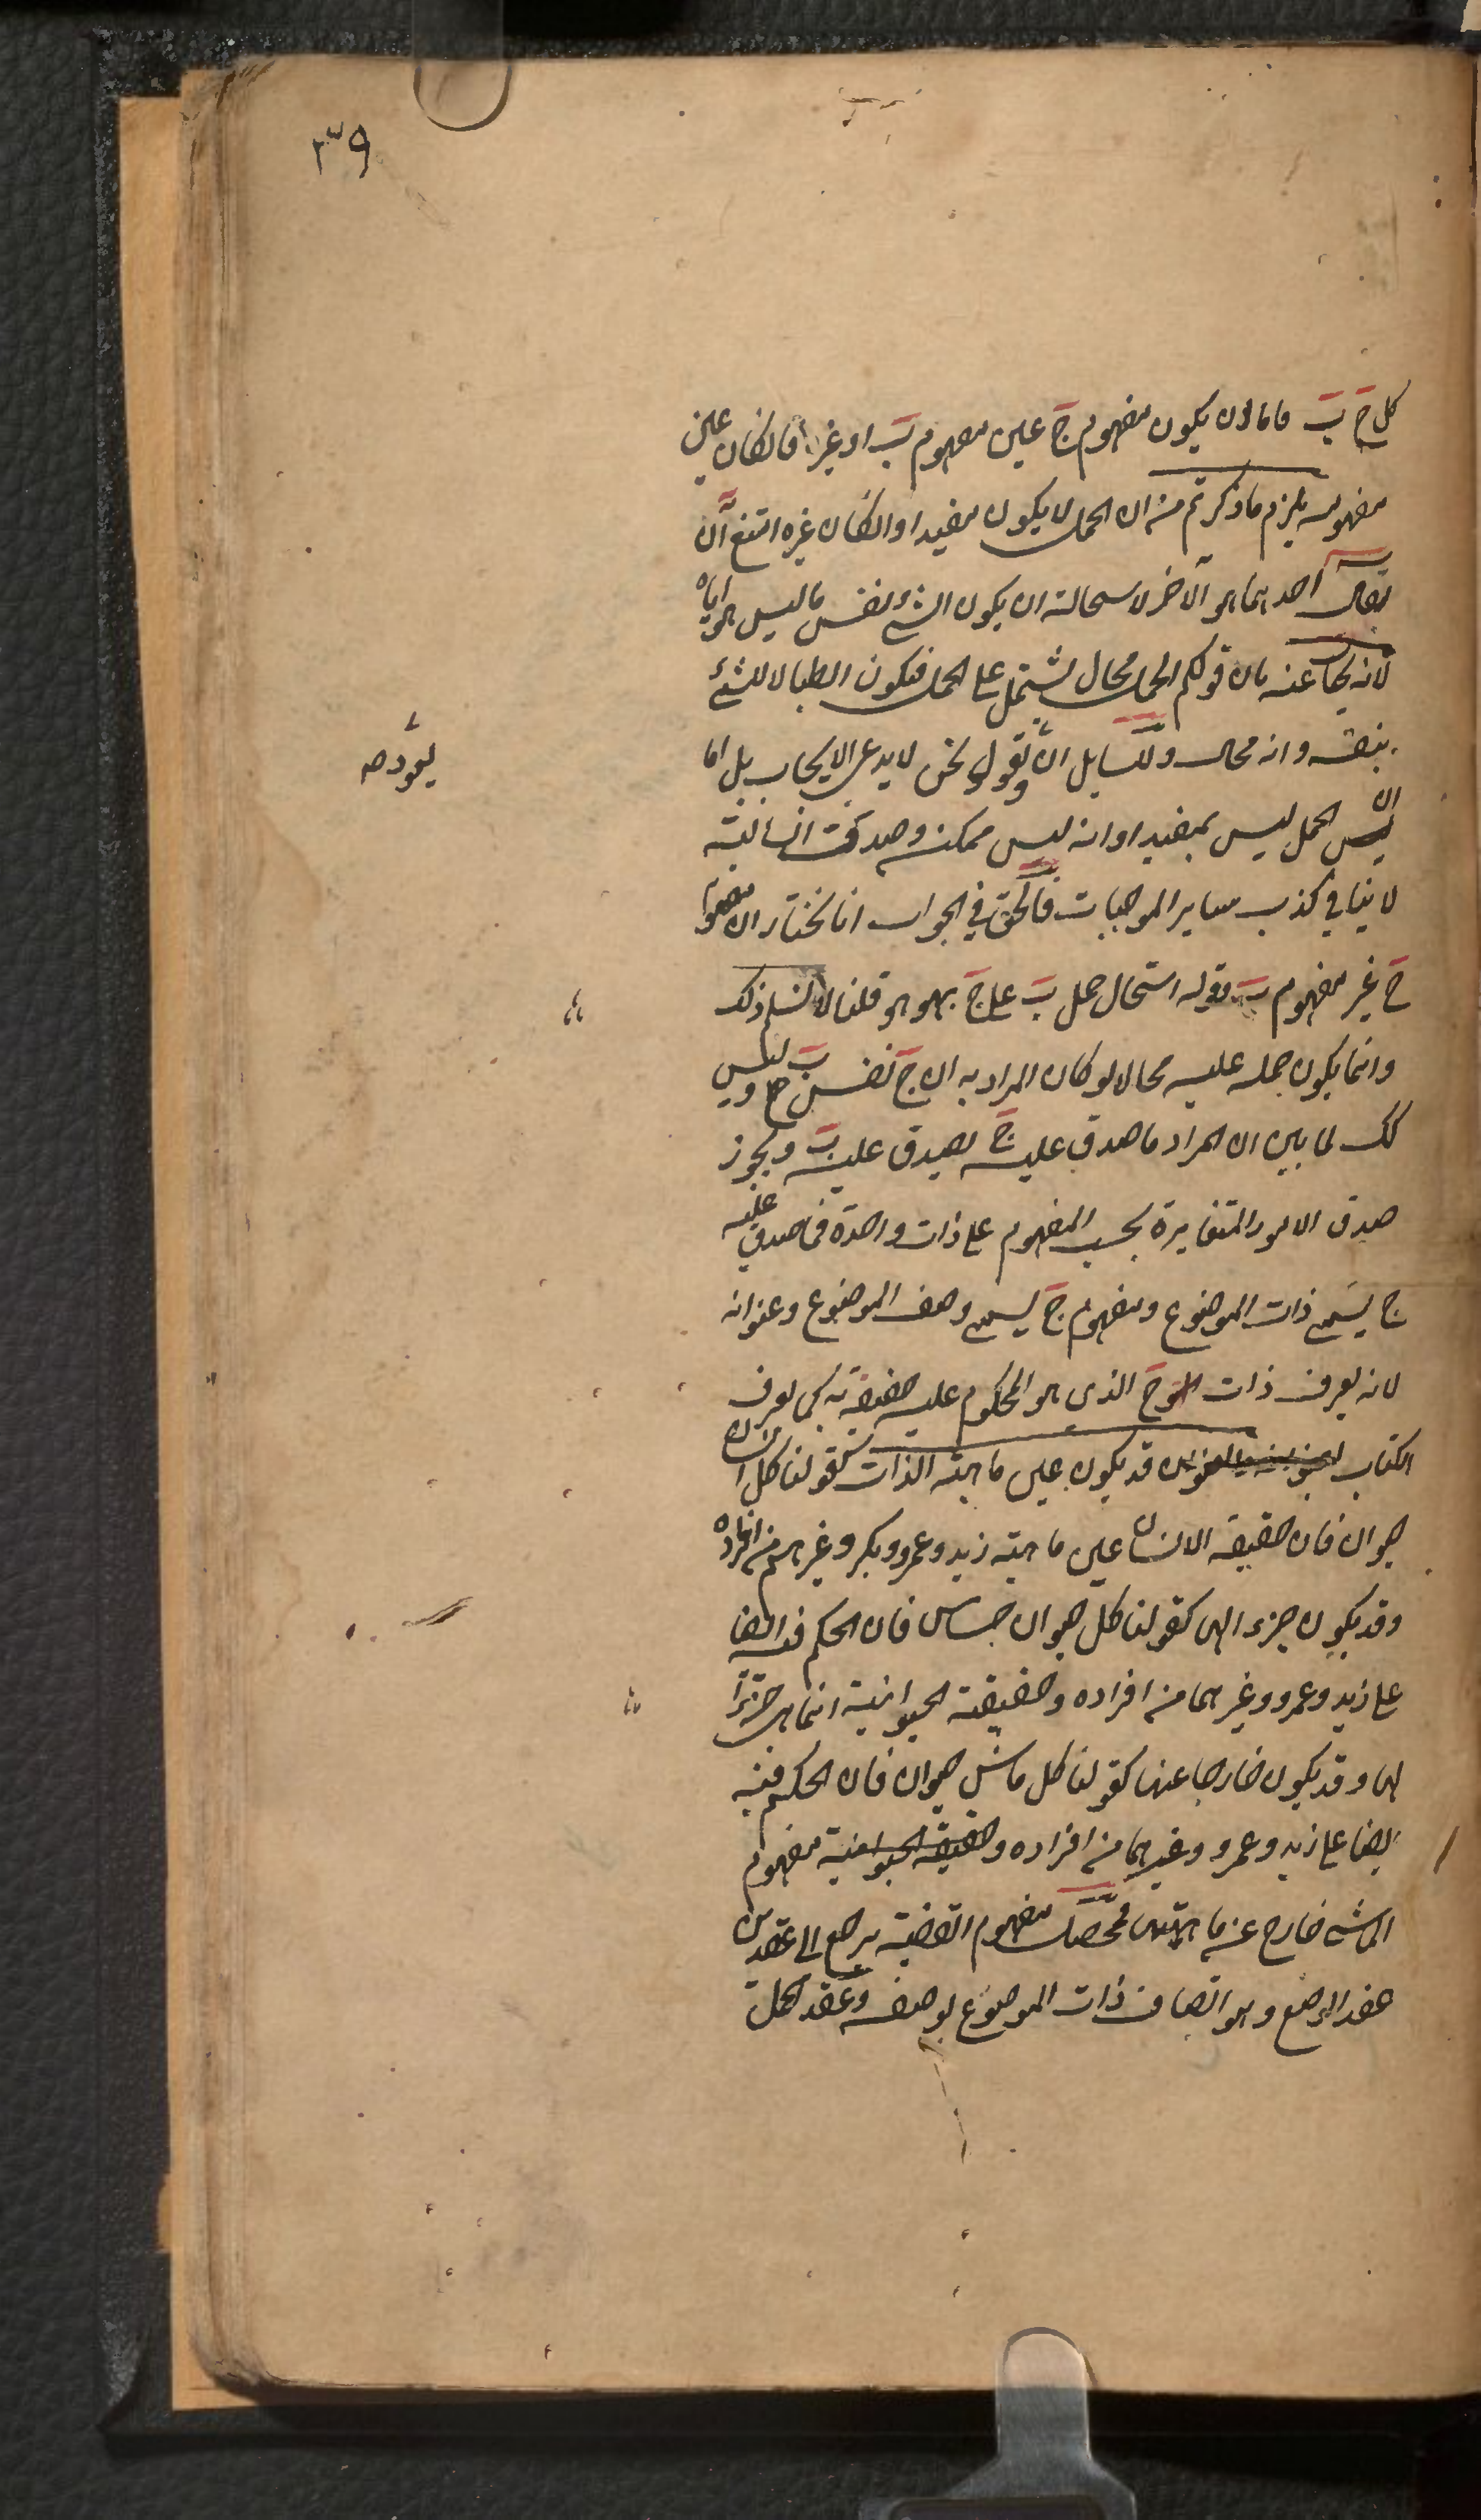 ٣٩
كل ج ب فاما ان يكون مفهوم ج عين مفهوم ب او غيره فان كان عين
مفهومه يلزم ما ذكرتم من ان الحمل لا يكون مفيدا وان كان غيره امتنع ان
يقال احدهما هو الاخر لاستحالة ان يكون الشئ نفس ما ليس هو اياه
لانه يجاب عنه بان قولكم الحمل محال يشتمل على الحمل فيكون ابطالا للشئ
بنفسه وانه محال وللسايل ان يعود ويقول نحن لا ندعى الايجاب بل اما
ان الحمل ليس بمفيد او انه ليس بممكن وصدق السالبة
لا ينافي كذب ساير الموجبات فالحق في الجواب انا نختار ان مفهوم
ج غير مفهوم ب وقوله استحال حمل ب على ج بهو هو قلنا لا نسلم ذلك
وانما يكون حمله عليه محالا لو كان المراد به ان ج نفس ب وليس
كك لما بين ان المراد ما صدق عليه ج يصدق عليه ب ويجوز
صدق الامور المتغايرة بحسب المفهوم على ذات واحدة فما صدق عليه
ج يسمى ذات الموضوع ومفهوم ج يسمى وصف الموضوع وعنوانه
لانه يعرف ذات ج الذى هو المحكوم عليه حقيقة به كما يعرف
الكتاب بعنوانه والعنوان قد يكون عين ماهية الذات كقولنا كل انسان
حيوان فان حقيقة الانسان عين ماهية زيد وعمرو وبكر وغيرهم من افراده
وقد يكون جزء لها كقولنا كل حيوان حساس فان الحكم فيه ايضا
على زيد وعمرو وغيرهما من افراده وحقيقة الحيوانية انما هى جزء
لها وقد يكون خارجا عنها كقولنا كل ماش حيوان فان الحكم فيه
ايضا على زيد وعمرو وغيرهما من افراده وحقيقة الحيوانية مفهوم
الماشى خارج عن ماهيتهما فمحصل مفهوم القضية يرجع الى عقدين
عقد الوضع وهو اتصاف ذات الموضوع بوصفه وعقد الحمل